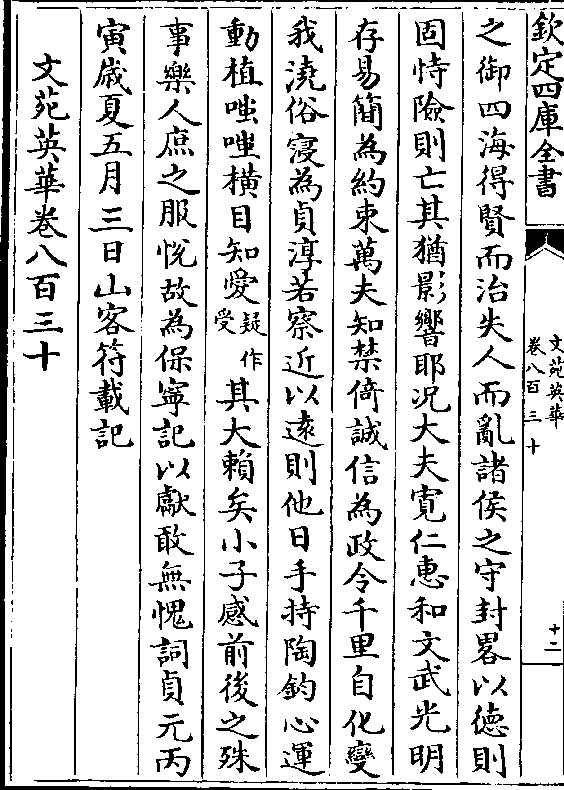 欽定四庫全書
文苑英華
卷八百三十
十二
之御四海得賢而治失人而亂諸侯之守封畧以德則
固恃險則亡其猶影響耶况大夫寬仁惠和文武光明
存易簡為約束萬夫知禁倚誠信為政令千里自化變
我澆俗寖為貞淳若察近以遠則他日手持陶鈞心運
動植嗤嗤横目知愛疑作受其大賴矣小子感前後之殊
事樂人庶之服悅故為保寧記以獻敢無愧詞貞元丙
寅歲夏五月三日山客符載記
文苑英華卷八百三十